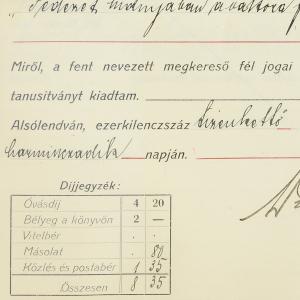 fedezet hiányában, a váltóra
Miről, a fent nevezett megkereső fél jogai
tanusitványt kiadtam.
Alsólendván, ezerkilenczszáz tizenkettő
harminczadik napján.
Díjjegyzék:
Óvásdíj 4 20
Bélyeg a könyvön 2 —
Vitelbér . .
Másolat . 80
Közlés és postabér 1 35
Összesen 8 35